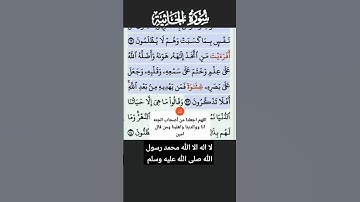 سُورَةُ الجَاثِيَةِ
نَفْسٍۭ بِمَا كَسَبَتْ وَهُمْ لَا يُظْلَمُونَ
أَفَرَءَيْتَ مَنِ ٱتَّخَذَ إِلَٰهَهُۥ هَوَىٰهُ وَأَضَلَّهُ ٱللَّهُ
عَلَىٰ عِلْمٍ وَخَتَمَ عَلَىٰ سَمْعِهِۦ وَقَلْبِهِۦ وَجَعَلَ
عَلَىٰ بَصَرِهِۦ غِشَٰوَةً فَمَن يَهْدِيهِ مِنۢ بَعْدِ ٱللَّهِ
أَفَلَا تَذَكَّرُونَ وَقَالُوا۟ مَا هِىَ إِلَّا حَيَاتُنَا
ٱلدُّنْيَا نَمُوتُ
لَهُم بِذَٰ يَظُنُّونَ
اللهم اجعلنا من أصحاب الجنه
انا ووالدينا واهلينا ومن قال
امين
لا اله الا الله محمد رسول
الله صلى الله عليه وسلم